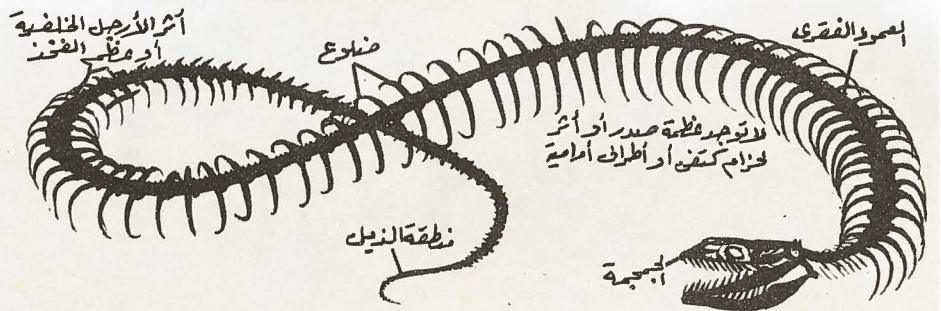 أثر الأرجل الخلفية
أو عظم الفخذ
ضلوع
العمود الفقرى
لا توجد عظمة صدر أو أثر
لحزام كتفى أو أطراف أمامية
منطقة الذيل
الجمجمة